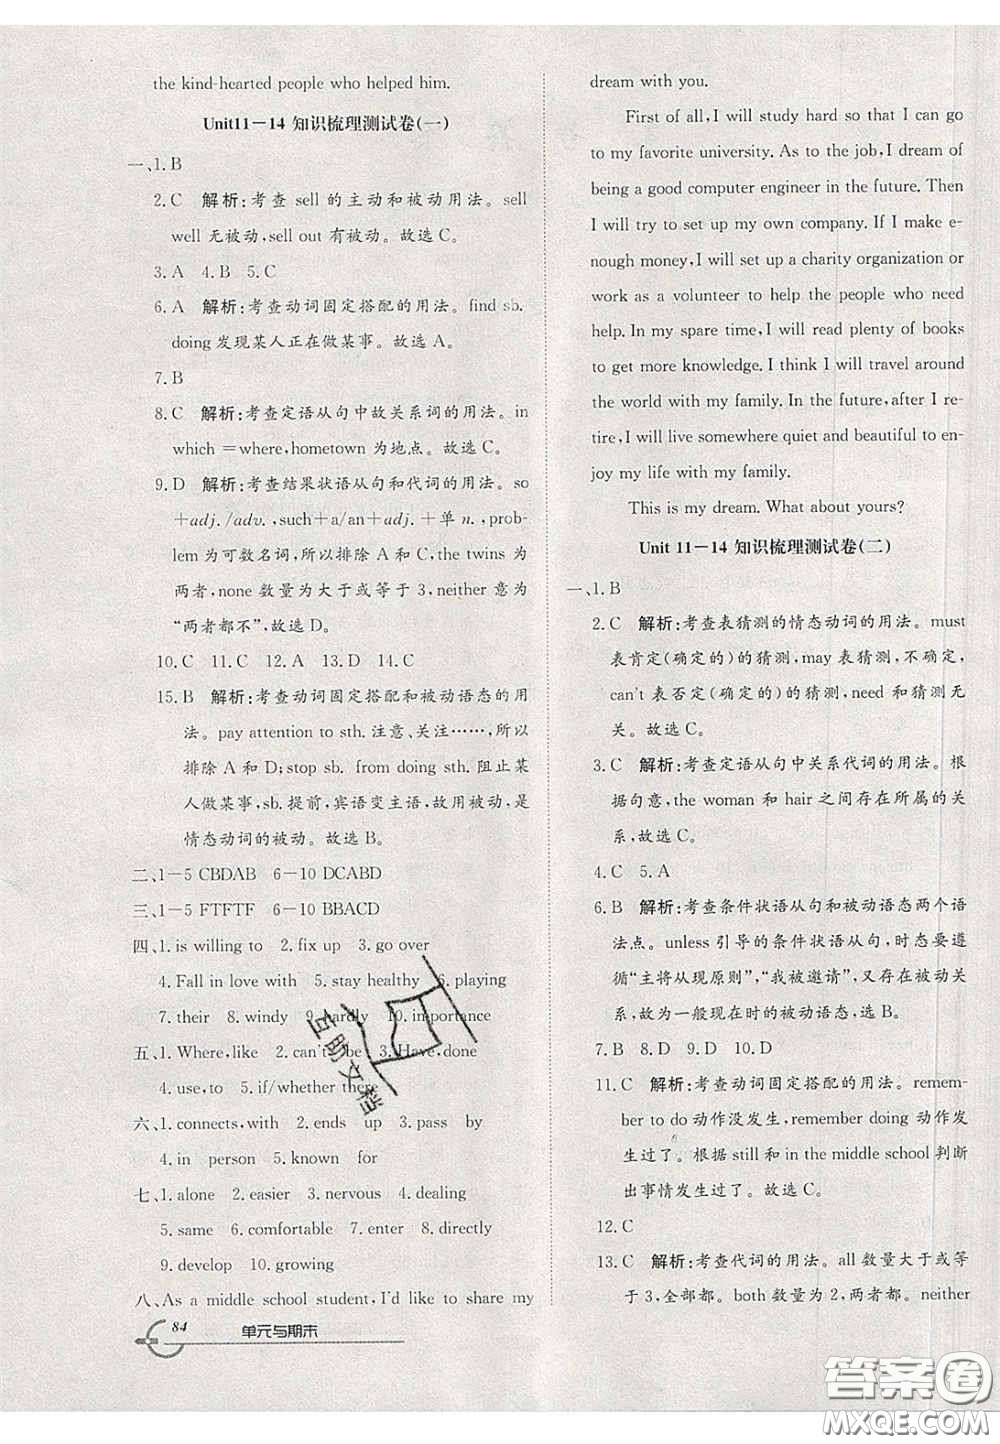 the kind-hearted people who helped him.
Unit11－14 知识梳理测试卷(一)
一、1. B
2. C 解析:考查 sell 的主动和被动用法。sell
well 无被动,sell out 有被动。故选 C。
3. A 4. B 5. C
6. A 解析:考查动词固定搭配的用法。find sb.
doing 发现某人正在做某事。故选 A。
7. B
8. C 解析:考查定语从句中故关系词的用法。in
which ＝where,hometown 为地点。故选 C。
9. D 解析:考查结果状语从句和代词的用法。so
＋adj. /adv. ,such＋a/an＋adj. ＋单 n. ,prob-
lem 为可数名词,所以排除 A 和 C,the twins 为
两者,none 数量为大于或等于 3,neither 意为
“两者都不”,故选 D。
10. C 11. C 12. A 13. D 14. C
15. B 解析:考查动词固定搭配和被动语态的用
法。pay attention to sth. 注意、关注……,所以
排除 A 和 D;stop sb. from doing sth. 阻止某
人做某事,sb. 提前,宾语变主语,故用被动,是
情态动词的被动。故选 B。
二、1－5 CBDAB 6－10 DCABD
三、1－5 FTFTF 6－10 BBACD
四、1. is willing to 2. fix up 3. go over
4. Fall in love with 5. stay healthy 6. playing
7. their 8. windy 9. hardly 10. importance
五、1. Where,like 2. can't be 3. Have,done
4. use,to 5. if/whether there
六、1. connects,with 2. ends up 3. pass by
4. in person 5. known for
七、1. alone 2. easier 3. nervous 4. dealing
5. same 6. comfortable 7. enter 8. directly
9. develop 10. growing
八、As a middle school student,I'd like to share my
84 单元与期末
dream with you.
First of all, I will study hard so that I can go
to my favorite university. As to the job, I dream of
being a good computer engineer in the future. Then
I will try to set up my own company. If I make e-
nough money, I will set up a charity organization or
work as a volunteer to help the people who need
help. In my spare time, I will read plenty of books
to get more knowledge. I think I will travel around
the world with my family. In the future, after I re-
tire, I will live somewhere quiet and beautiful to en-
joy my life with my family.
This is my dream. What about yours?
Unit 11－14 知识梳理测试卷(二)
一、1. B
2. C 解析:考查表猜测的情态动词的用法。must
表肯定(确定的)的猜测,may 表猜测,不确定,
can't 表否定(确定的)的猜测,need 和猜测无
关。故选 C。
3. C 解析:考查定语从句中关系代词的用法。根
据句意,the woman 和 hair 之间存在所属的关
系,故选 C。
4. C 5. A
6. B 解析:考查条件状语从句和被动语态两个语
法点。unless 引导的条件状语从句,时态要遵
循“主将从现原则”,“我被邀请”,又存在被动关
系,故为一般现在时的被动语态,故选 B。
7. B 8. D 9. D 10. D
11. C 解析:考查动词固定搭配的用法。remem-
ber to do 动作没发生,remember doing 动作发
生过了。根据 still 和 in the middle school 判断
出事情发生过了。故选 C。
12. C
13. C 解析:考查代词的用法。all 数量大于或等
于 3,全部都。both 数量为 2,两者都。neither
互助文档
答案圈
MXQE.COM